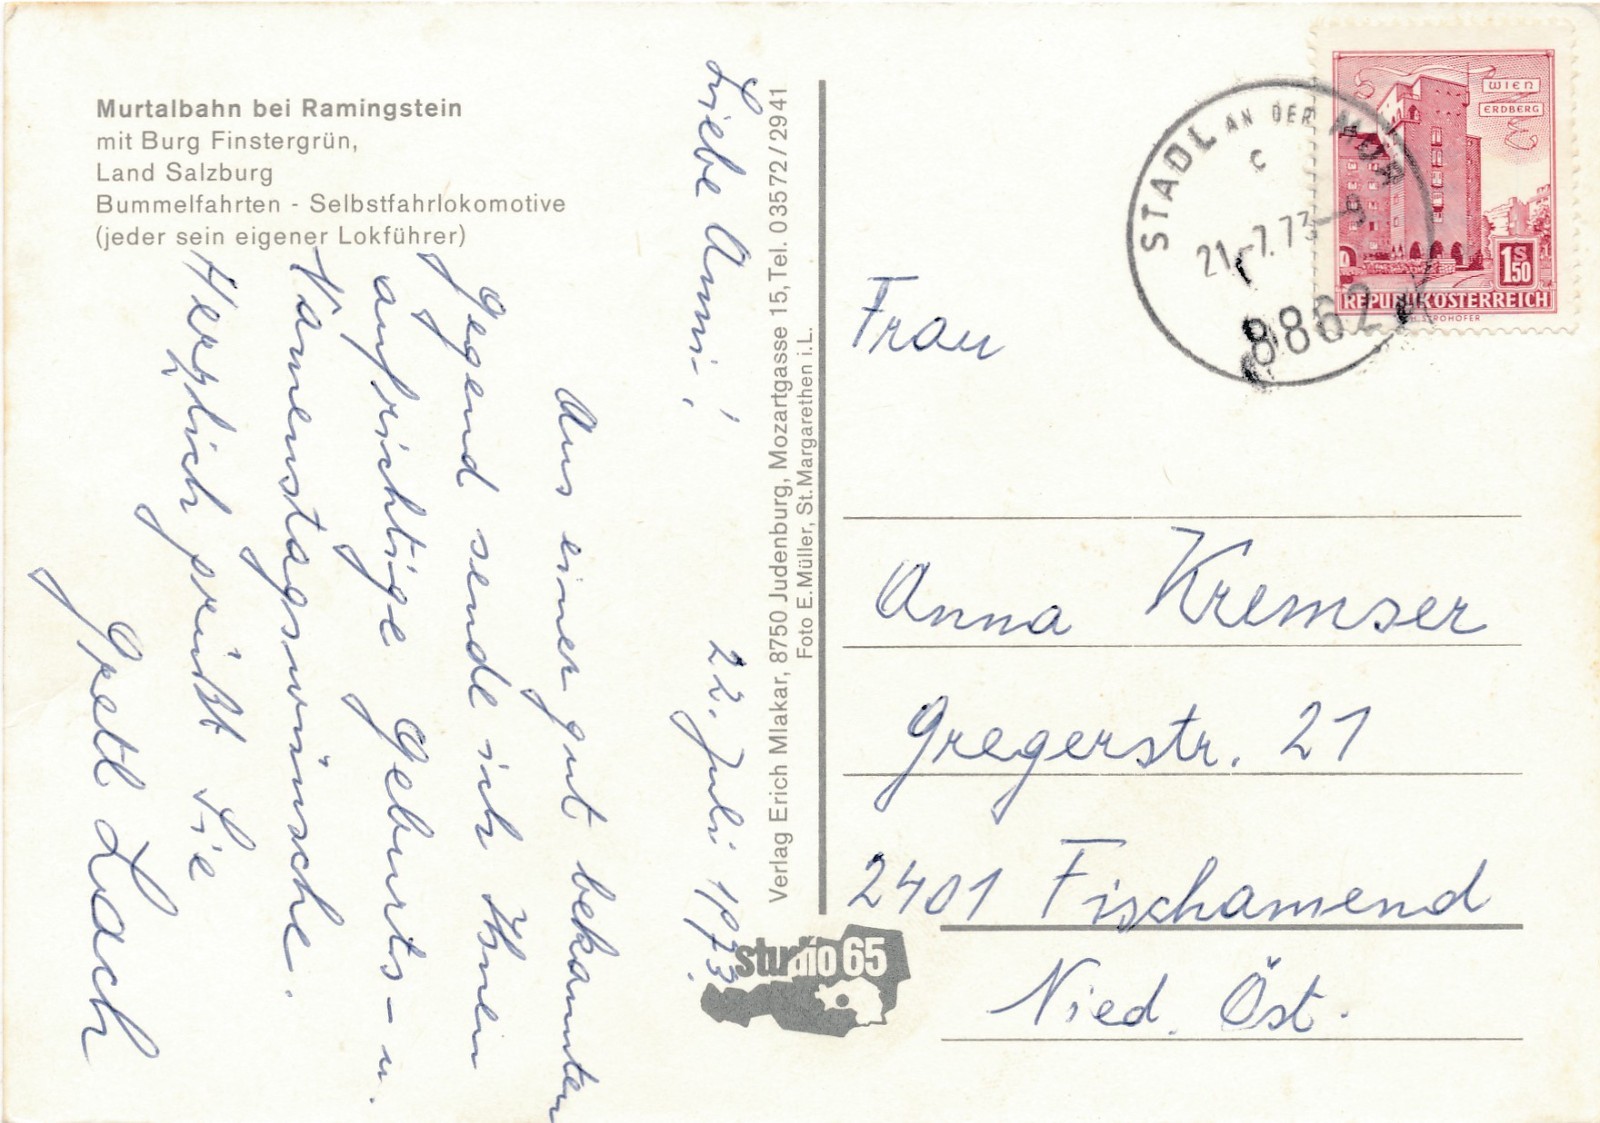 Murtalbahn bei Ramingstein
mit Burg Finstergrün,
Land Salzburg
Bummelfahrten - Selbstfahrlokomotive
(jeder sein eigener Lokführer)
Liebe Anni! 22. Juli 1973.
Aus einer gut bekannten
Gegend sende ich Ihnen
aufrichtige Geburts- u.
Namenstagswünsche.
Herzlich grüßt Sie
Gretl Lach
Verlag Erich Mlakar, 8750 Judenburg, Mozartgasse 15, Tel. 03572/2941
Foto E. Müller, St. Margarethen i. L.
studio 65
STADL AN DER MUR
C
21.-7.73-9
8862
WIEN
ERDBERG
1S50
REPUBLIK ÖSTERREICH
H. STROHOFER
Frau
Anna Kremser
Gregerstr. 21
2401 Fischamend
Nied. Öst.